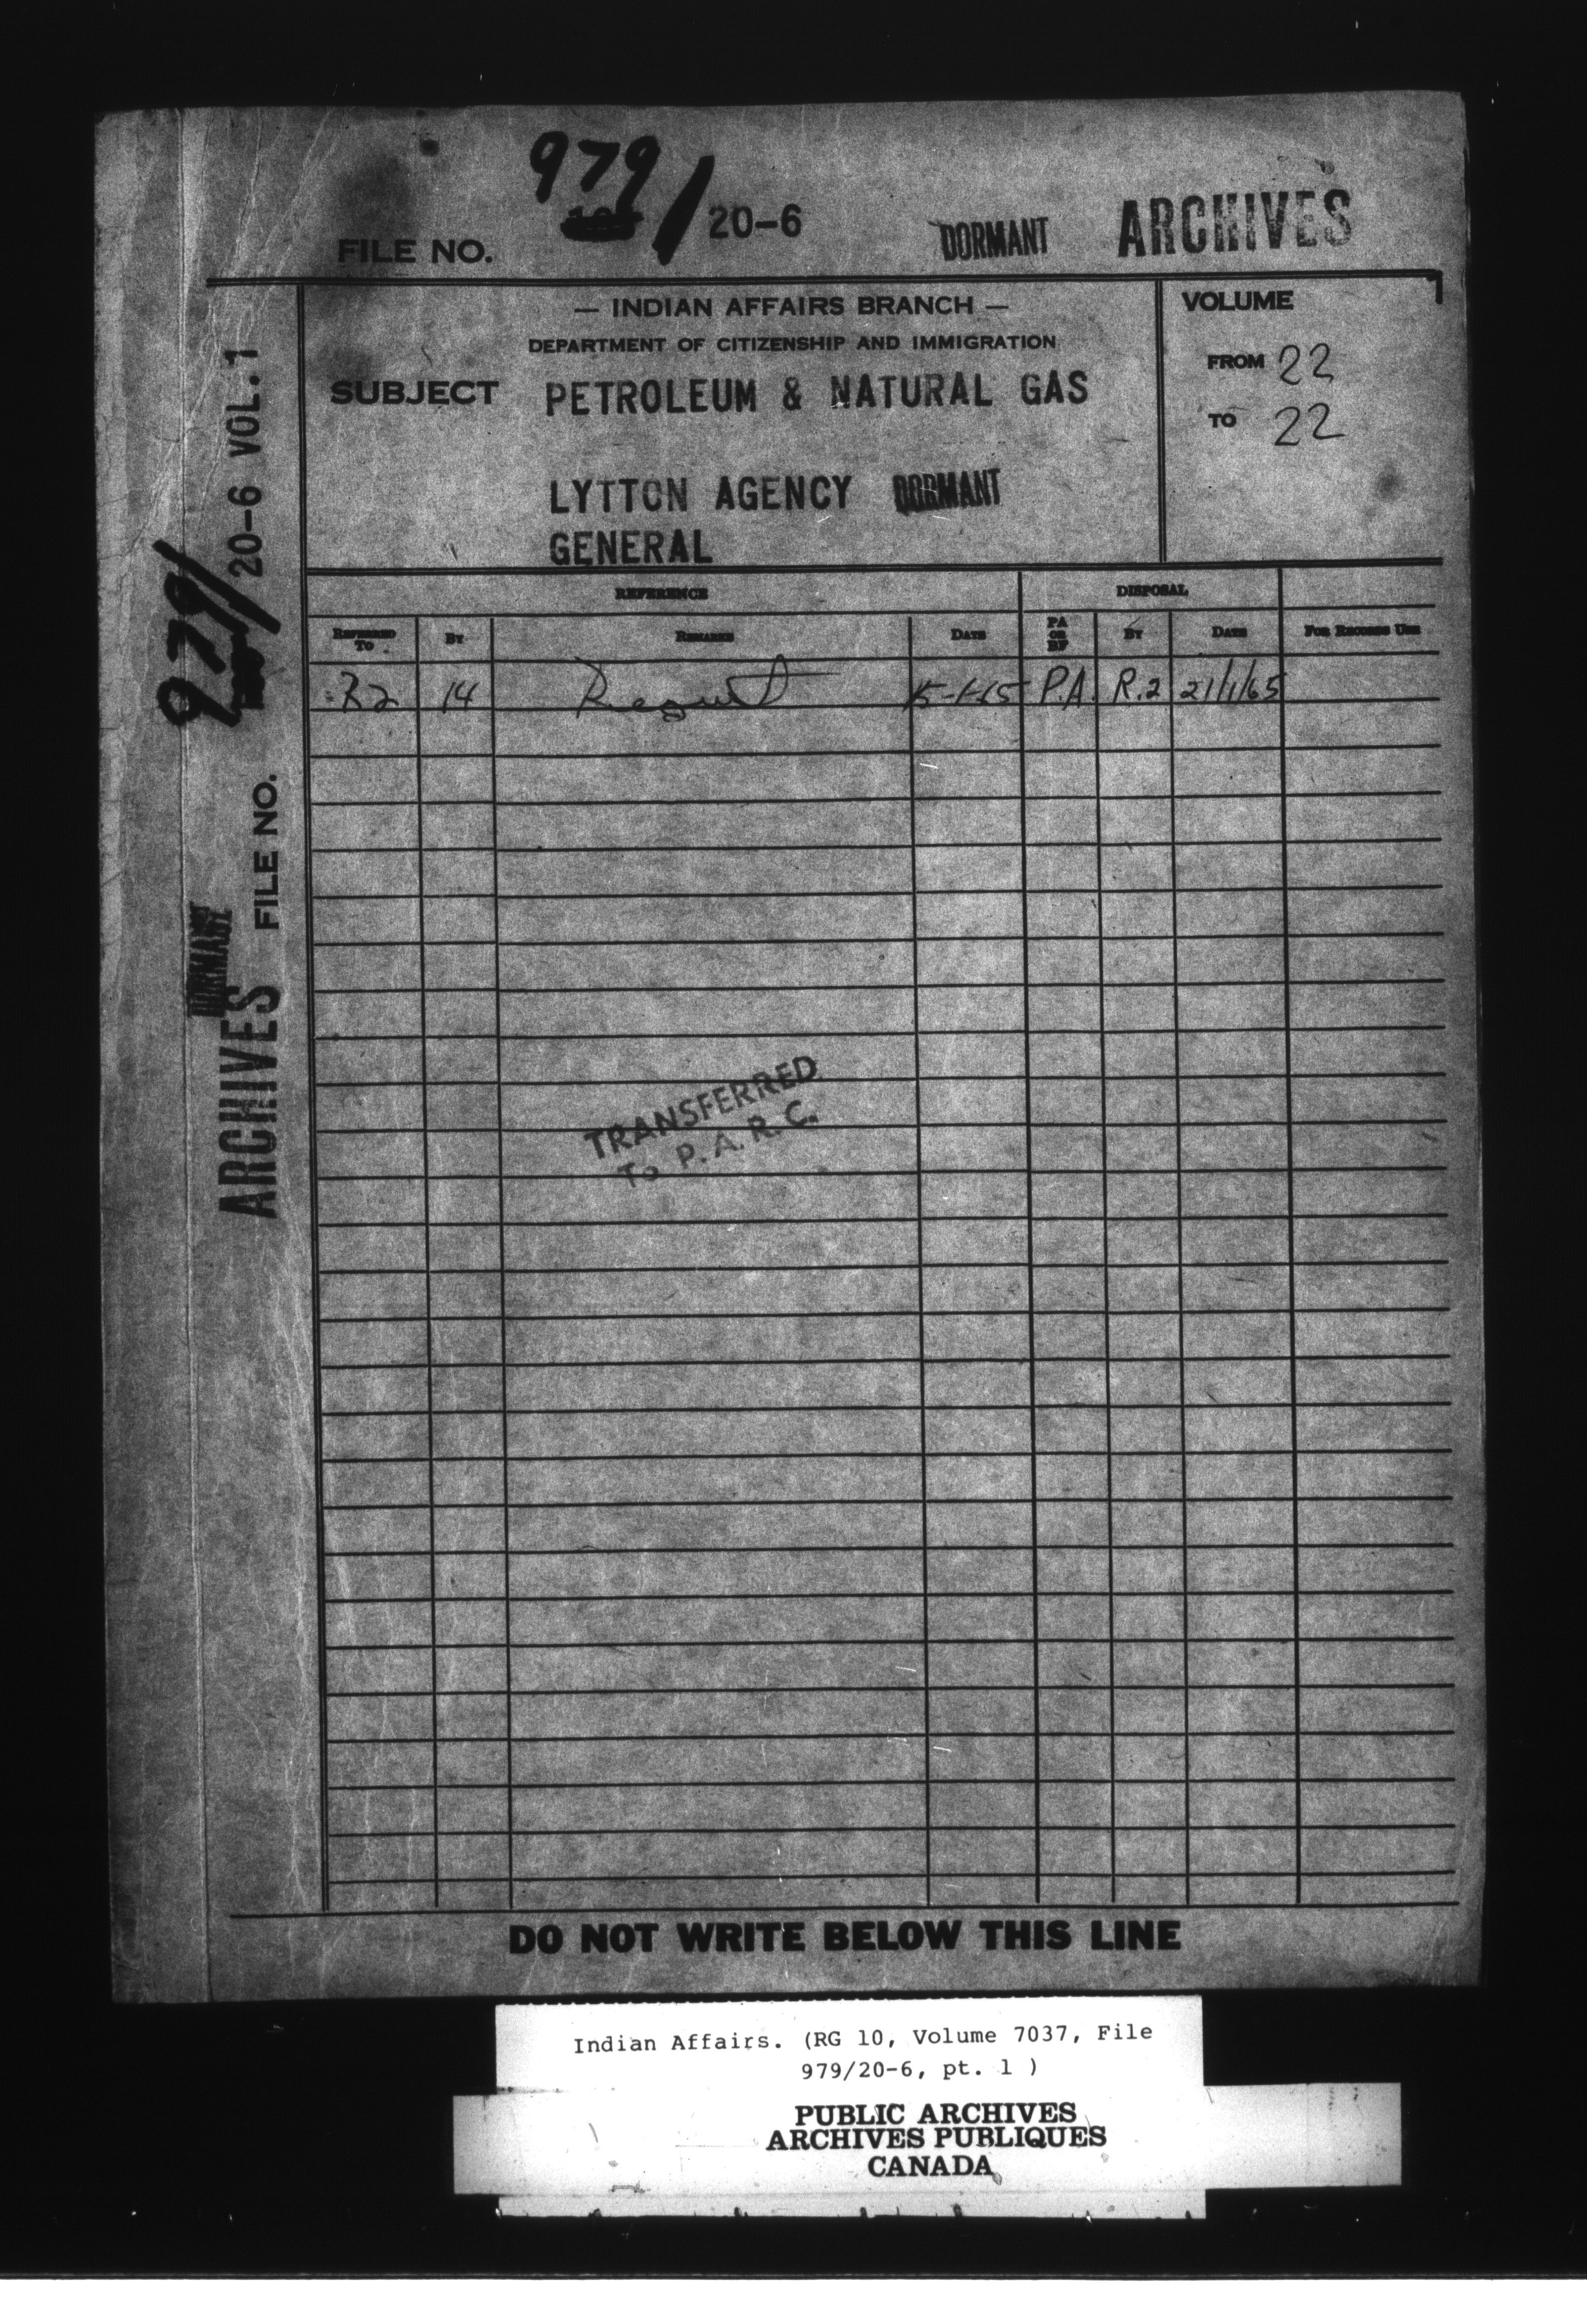 979/20-6
FILE NO.
DORMANT
ARCHIVES
— INDIAN AFFAIRS BRANCH —
DEPARTMENT OF CITIZENSHIP AND IMMIGRATION
SUBJECT PETROLEUM & NATURAL GAS
LYTTON AGENCY DORMANT
GENERAL
VOLUME
FROM 22
TO 22
REFERENCE
DISPOSAL
REFERRED TO
BY
REMARKS
DATE
PA OR BF
BY
DATE
FOR RECORDS USE
R2 14 Request 15-1-65 P.A. R.2 21/1/65
TRANSFERRED
To P.A.R.C.
979/20-6 VOL.1
FILE NO.
DORMANT
ARCHIVES
DO NOT WRITE BELOW THIS LINE
Indian Affairs. (RG 10, Volume 7037, File
979/20-6, pt. 1 )
PUBLIC ARCHIVES
ARCHIVES PUBLIQUES
CANADA